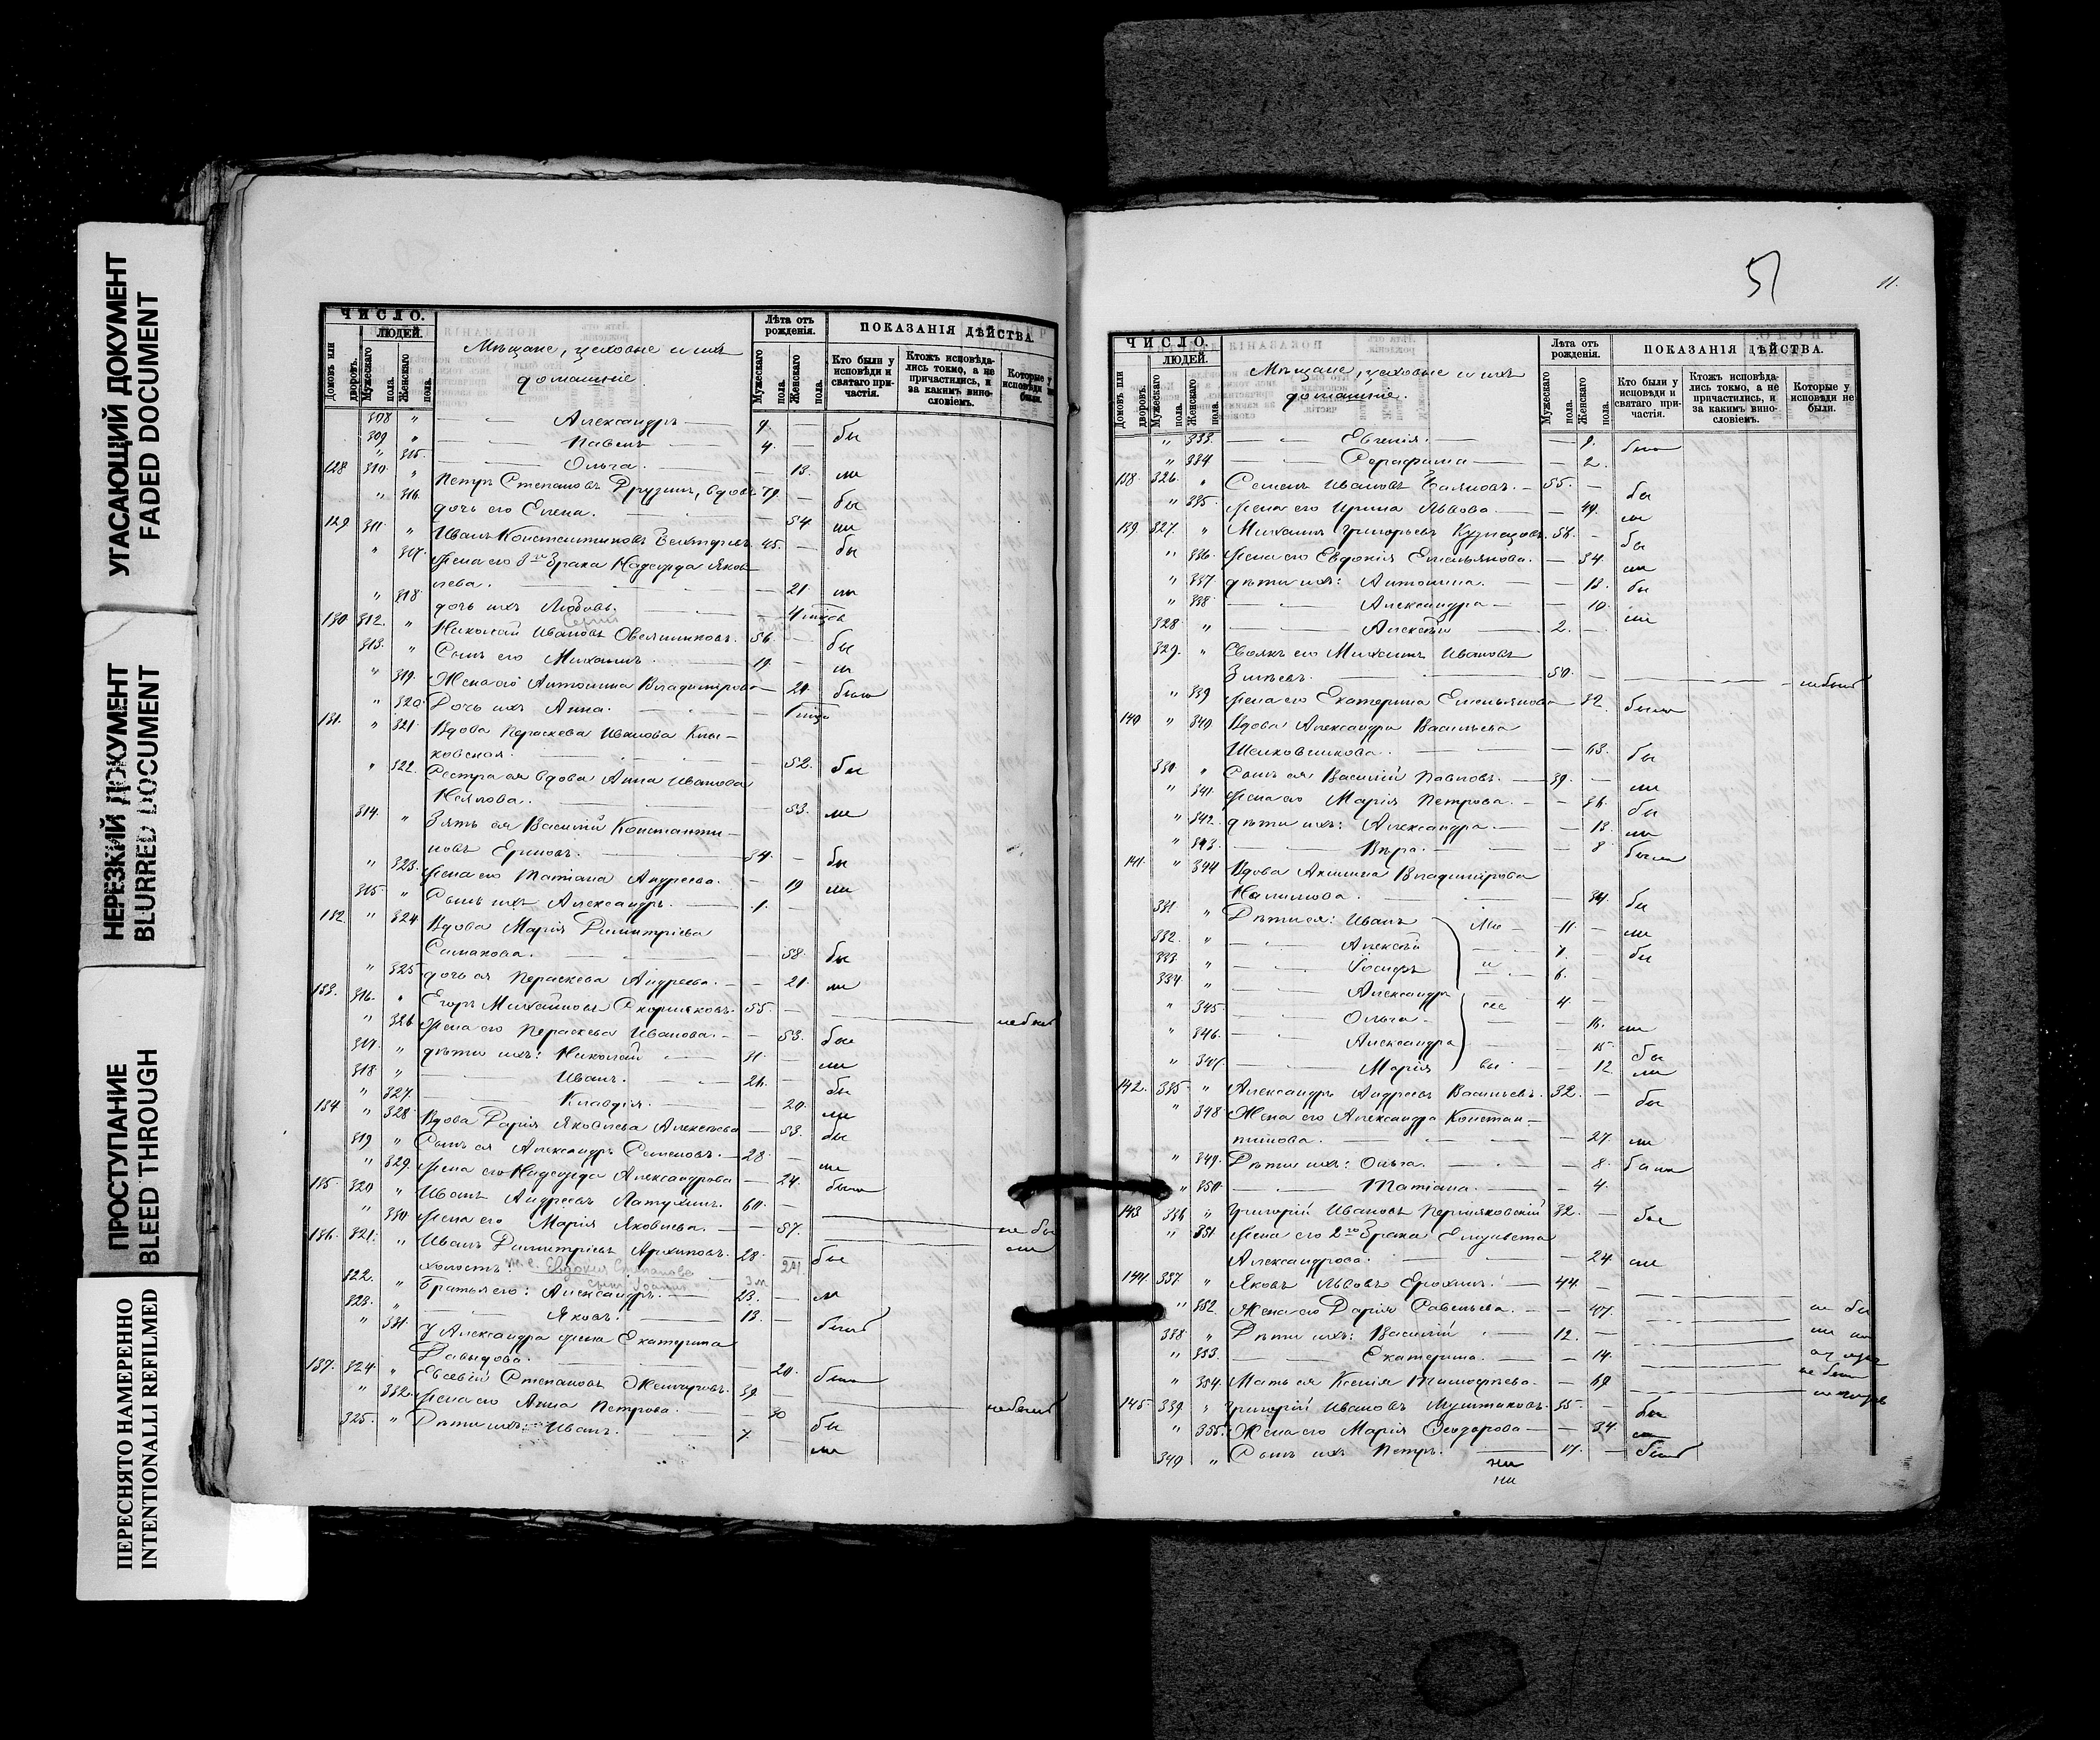 УГАСАЮЩИЙ ДОКУМЕНТ
FADED DOCUMENT
НЕРЕЗКИЙ ДОКУМЕНТ
BLURRED DOCUMENT
ПРОСТУПАНИЕ
BLEED THROUGH
ПЕРЕСНЯТО НАМЕРЕННО
INTENTIONALLI REFILMED
ЧИСЛО.
ЛЮДЕЙ.
Домовъ или дворовъ.
Мужескаго пола.
Женскаго пола.
Мѣщане, цеховые и ихъ
домашніе.
Лѣта отъ рожденія.
Мужескаго пола.
Женскаго пола.
ПОКАЗАНІЯ ДѢЙСТВА.
Кто были у исповѣди и святаго причастія.
Ктожъ исповѣдались токмо, а не причастились, и за какимъ винословіемъ.
Которые у исповѣди не были.
308 " Александръ 9. бы
309 " Павелъ 4.
" 315. Ольга. 13. ли
128 310. " Петръ Степановъ Друзинъ, вдовъ 79. бы
" 316. дочь его Елена. 54 ли
129 311. " Иванъ Константиновъ 45. бы
" 317. Жена его 2го брака Надежда Яков-
лева. 21. ли
" 318. дочь ихъ Любовь. 4 мѣсяц
130 312. " Николай Ивановъ Овсянниковъ. 56. бы
313. " Сынъ его Михаилъ. 19. ли
" 319. Жена его Антонина Владимірова 21. была
" 320. Дочь ихъ Анна.
131. " 321. Вдова Параскева Иванова
ковская. 52. бы
" 322. Сестра ея вдова Анна Иванова
53. ли
314. " Зять ея Василій Константи-
новъ Ершовъ. 34. бы
" 323. Жена его Татіана Андреева. 19 ли
315. " Сынъ ихъ Александръ. 1.
132. " 324. Вдова Марія Димитріева
Симакова. 58. бы
" 325 дочь ея Параскева Андреева. 21. ли
133. 316. " Егоръ Михайловъ Скорняковъ. 55. не былъ
" 326 Жена его Параскева Иванова. 53. бы
317. " дѣти ихъ: Николай 31. ли
318 " Иванъ. 26. бы
" 327. Клавдія. 20. ли
134 " 328 Вдова Дарія Яковлева Алексѣева 53. бы
319 " Сынъ ея Александръ Семеновъ. 28. ли
" 329. Жена его Надежда Александрова 24. была
135. 320 " Иванъ Андреевъ Латухинъ. 60. не бы
" 330. Жена его Марія Яковлева. 57. ли
136. 321. " Иванъ Димитріевъ Архиповъ. 28. бы
холостъ. ж. е. Евдокія Степанова 24.
322. " Братья его: Александръ. 23. ли
323. " Яковъ. 13. былъ
" 331. У Александра жена Екатерина
Давыдова. 20. была
137. 324. " Евсевій Степановъ Жемчуговъ. 39. не былъ
" 332. Жена его Анна Петрова. 30 бы
325. " Дѣти ихъ: Иванъ. 7. ли
51
11.
ЧИСЛО.
ЛЮДЕЙ.
Домовъ или дворовъ.
Мужескаго пола.
Женскаго пола.
Мѣщане, цеховые и ихъ
домашніе.
Лѣта отъ рожденія.
Мужескаго пола.
Женскаго пола.
ПОКАЗАНІЯ ДѢЙСТВА.
Кто были у исповѣди и святаго причастія.
Ктожъ исповѣдались токмо, а не причастились, и за какимъ винословіемъ.
Которые у исповѣди не были.
" 333. Евгенія. 9. была
" 334 Серафима 2.
138. 326. " Семенъ Ивановъ 55. бы
" 335 Жена его Ирина Львова. 49. ли
139. 327. " Михаилъ Григорьевъ Кузнецовъ. 56. бы
" 336. Жена его Евдокія Емельянова. 34. ли
" 337 дѣти ихъ: Антонина. 13. бы
" 338. Александра 10. ли
328 " Алексѣй 2.
329. " Своякъ его Михаилъ Ивановъ
50. не былъ
" 339 Жена его Екатерина Емельянова 32. была
140 " 340 Вдова Александра Васильева
Шелковникова. 63. бы
330. " Сынъ ея Василій Павловъ. 39. ли
" 341. Жена его Марія Петрова. 36. бы
" 342. дѣти ихъ: Александра. 13. ли
" 343. Вѣра. 8 была
141. " 344 Вдова Акилина Владимірова
Калинова. 34. бы
331. " Дѣти ея: Иванъ 11. ли
332. " Алексѣй 7. бы
333. " Іосифъ 6.
334. " Александръ 4.
" 345. Ольга 16. ли
" 346. Александра 15. бы
" 347. Марія 12. ли
142. 335. " Александръ Андреевъ Васильевъ. 32. бы
" 348 Жена его Александра Констан-
тинова. 27. ли
" 349. Дѣти ихъ: Ольга. 8. была
" 350. Татіана. 4.
143 336 " Григорій Ивановъ Пермяковскій 32. бы
" 351 Жена его 2го брака Елизавета
Александрова. 24. ли
144. 337 " Яковъ Львовъ Ерохинъ. 44. не бы
" 352. Жена его Дарія Савельева. 47. ли
338. " Дѣти ихъ: Василій 12.
" 353. Екатерина. 14.
" 354. Мать ея Ксенія Тимофѣева. 69
145 339. " Григорій Ивановъ 35. бы
" 355. Жена его Марія Ѳеодорова 34. ли
340 " Сынъ ихъ Петръ. 17. былъ